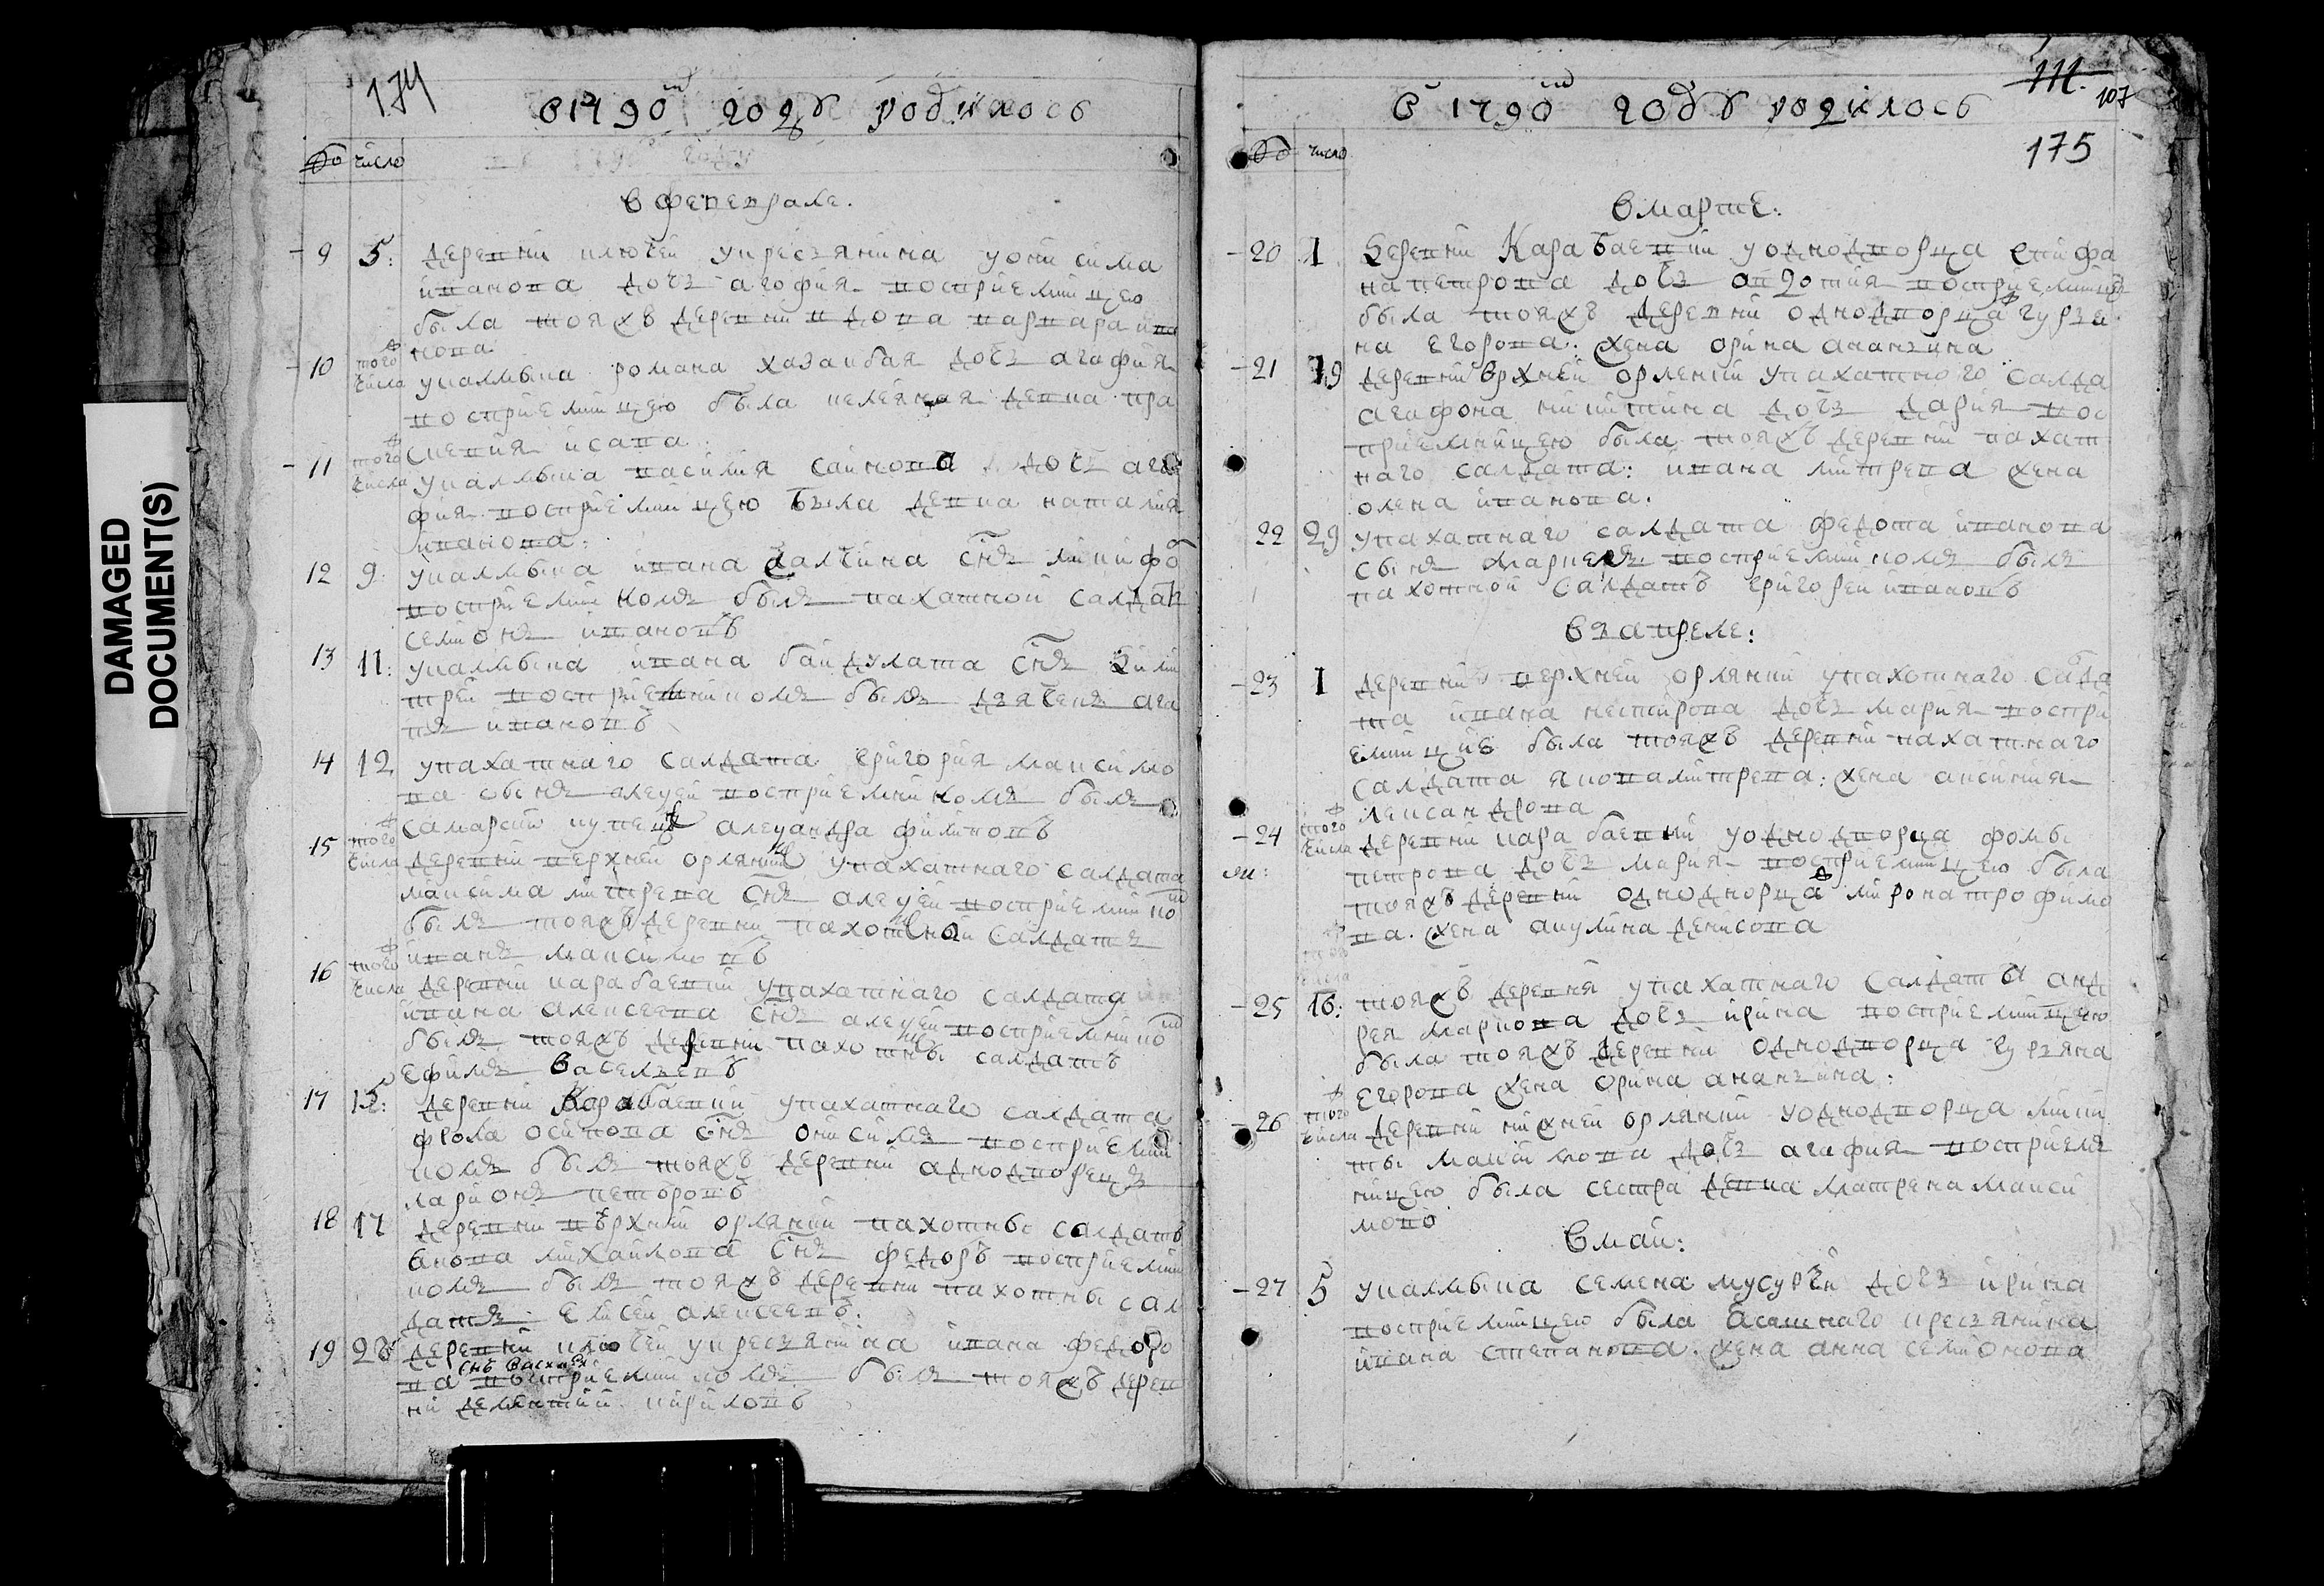 174
в 1790м годѣ родилось
№ число
в феврале.
9 5: деревни ключей укресъянина уонисима
иванова дочъ агофия восприемницею
была тояжъ деревни вдова варвара ива
нова
10 того числа укалмыка романа хазанбая дочъ агафия
восприемницею была келейная девка пра
сковия исава
11 того числа укалмыка василия саикова дочъ ага
фия восприемницею была девка наталия
иванова:
12 9: укалмыка ивана калчина снъ никифо
восприемникомъ былъ пахатной салдат
семионъ ивановъ
13 11: укалмыка ивана байдулата снъ дими
трей восприемникомъ былъ дьячекъ ага
пъ ивановъ
14 12 упахатнаго салдата григория максимо
ва сынъ алеѯей восприемникомъ былъ
самарский купецъ алеѯандра филиповъ
15 того числа деревни верхней орлянки упахатнаго салдата
максима митрева снъ алеѯей восприемнико
былъ тояжъ деревни пахотной салдатъ
иванъ максимовъ
16 того числа деревни карабаевки упахатнаго салдата
ивана алексеева снъ алеѯей восприемнико
былъ тояжъ деревни пахотны салдатъ
ефимъ васельевъ
17 15: деревни Карабаевки упахатнаго салдата
фрола осипова снъ онисимъ восприемни
комъ былъ тояжъ деревни аднодворецъ
ларионъ петровъ
18 17 деревни верхней орлянки пахотны салдатъ
михайлова снъ федоръ восприемни
комъ былъ тояжъ деревни пахотны сал
датъ елисей алексеевъ:
19 28 деревни ключей укресъянина ивана федоро
снъ васили
ва восприемникомъ былъ тояжъ дерев
ни деменьтий кириловъ
111.
107
175
в 1790м годѣ родилось
№ число
в марте:
20 1 деревни Карабаевки уоднодворца епифа
на петрова дочъ овдотия восприемнице
была тояжъ деревни однодворца гурья
на егорова: жена орина ананьина
21 19 деревни врхней орленки упахатного салда
агафона никитина дочъ дария вос
приемницею была тояжъ деревни пахат
наго салдата: ивана митрева жена
олена иванова.
22 29 упахатнаго салдата федота иванова
сынъ маркелъ восприемникомъ былъ
пахотной салдатъ григорей ивановъ
въ апреле:
23 1 деревни верхней орлянки упахотнаго салда
та ивана нестирова дочъ мария воспри
емницию была тояжъ деревни пахатнаго
салдата якова митрева: жена аксиния
лександрова
24 того числа деревни карабаевки уоднодворца фомы
петрова дочъ мария восприемницею была
тояжъ деревни однодворца мирона трофимо
ва. жена акулина денисова
25 16: тояжъ деревня упахатнаго салдата анд
рея маркова дочъ ирина восприемницею
была тояжъ деревни однодворца гурьяна
егорова жена орина ананьина:
26 того числа деревни нижней орлянки уоднодворца ники
ты максимова дочъ агафия восприем
ницею была сестра девка матрена макси
мово
в маи:
27 5 укалмыка семена мусурги дочъ ирина
восприемницею была асашнаго кресъянина
ивана степанова. жена анна семионова
DAMAGED
DOCUMENT(S)